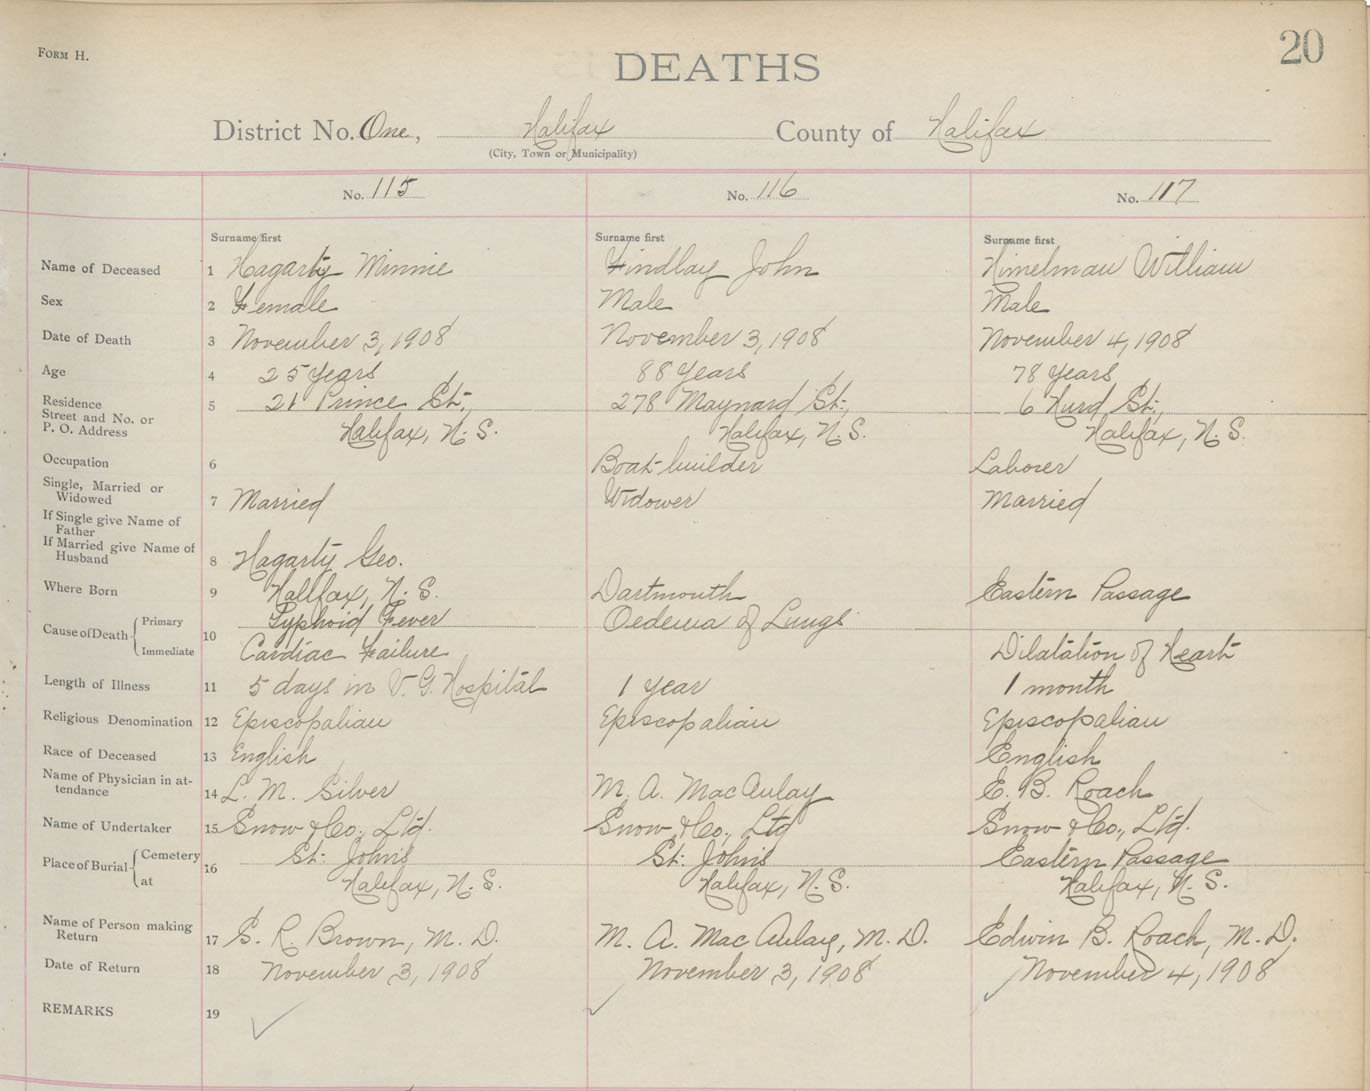 FORM H.
20
DEATHS
District No. One, Halifax County of Halifax
(City, Town or Municipality)
No. 115 No. 116 No. 117
Surname first Surname first Surname first
Name of Deceased 1 Hagarty Minnie Findlay John Himelman William
Sex 2 Female Male Male
Date of Death 3 November 3, 1908 November 3, 1908 November 4, 1908
Age 4 25 Years 88 Years 78 Years
Residence Street and No. or P. O. Address 5 21 Prince St., 278 Maynard St., 6 Hurd St.,
Halifax, N. S. Halifax, N. S. Halifax, N. S.
Occupation 6 Boat-builder Laborer
Single, Married or Widowed 7 Married Widower Married
If Single give Name of Father
If Married give Name of Husband 8 Hagarty Geo.
Where Born 9 Halifax, N. S. Dartmouth Eastern Passage
Cause of Death Primary 10 Typhoid Fever Oedema of Lungs
Immediate Cardiac Failure Dilatation of Heart
Length of Illness 11 5 days in V. G. Hospital 1 year 1 month
Religious Denomination 12 Episcopalian Episcopalian Episcopalian
Race of Deceased 13 English English
Name of Physician in attendance 14 L. M. Silver M. A. MacAulay E. B. Roach
Name of Undertaker 15 Snow & Co., Ltd. Snow & Co., Ltd Snow & Co., Ltd.
Place of Burial Cemetery 16 St. John's St. John's Eastern Passage
at Halifax, N. S. Halifax, N. S. Halifax, N. S.
Name of Person making Return 17 G. R. Brown, M. D. M. A. MacAulay, M. D. Edwin B. Roach, M. D.
Date of Return 18 November 3, 1908 November 3, 1908 November 4, 1908
REMARKS 19